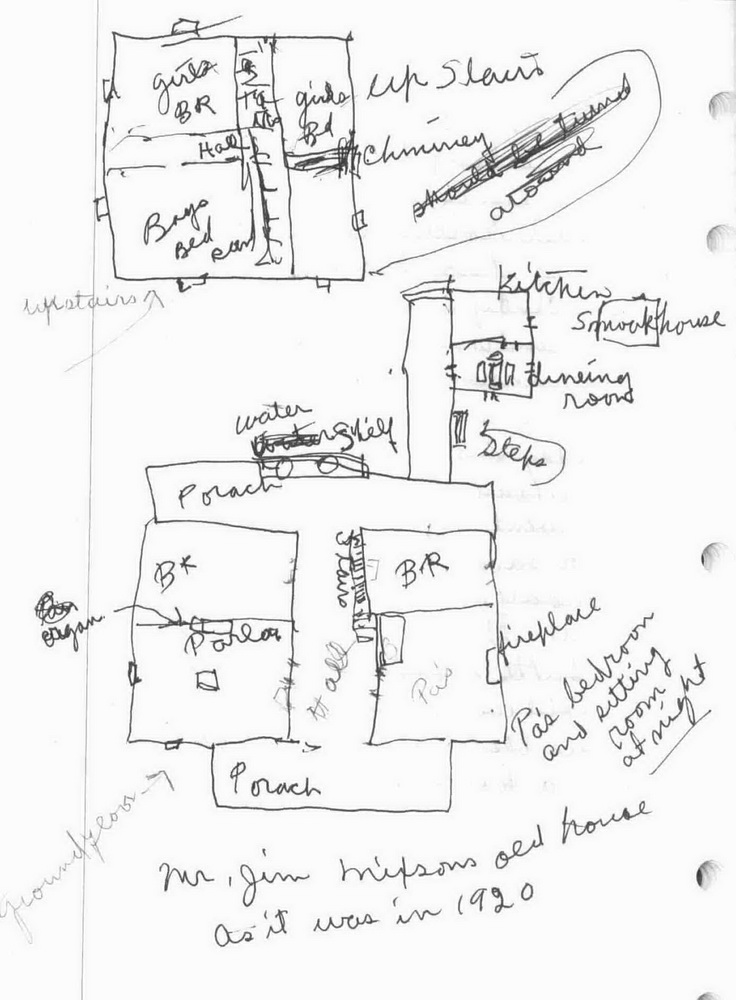 girls
BR
girls
Bd
up Stairs
Hall
Chminey
should be turned
around
Boys
Bed
room
upstairs
Kitchen
Smoakhouse
dineing
room
water
Shelf
Steps
Porach
BR
Stairs
BR
organ
Parlor
Hall
Pa's
fireplace
Pa's bedroom
and sitting
room
at night
Porach
groundfloor
Mr. Jim Mixsons old house
as it was in 1920